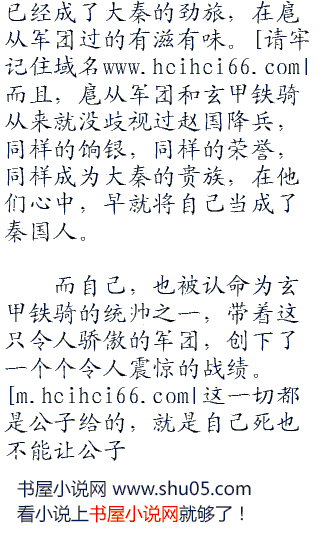 已经成了大秦的劲旅，在扈
从军团过的有滋有味。[请牢
记住域名www.hcihci66.com|
而且，扈从军团和玄甲铁骑
从来就没歧视过赵国降兵，
同样的饷银，同样的荣誉，
同样成为大秦的贵族，在他
们心中，早就将自己当成了
秦国人。
而自己，也被认命为玄
甲铁骑的统帅之一，带着这
只令人骄傲的军团，创下了
一个个令人震惊的战绩。
[m.hcihci66.com|这一切都
是公子给的，就是自己死也
不能让公子
书屋小说网 www.shu05.com
看小说上书屋小说网就够了！